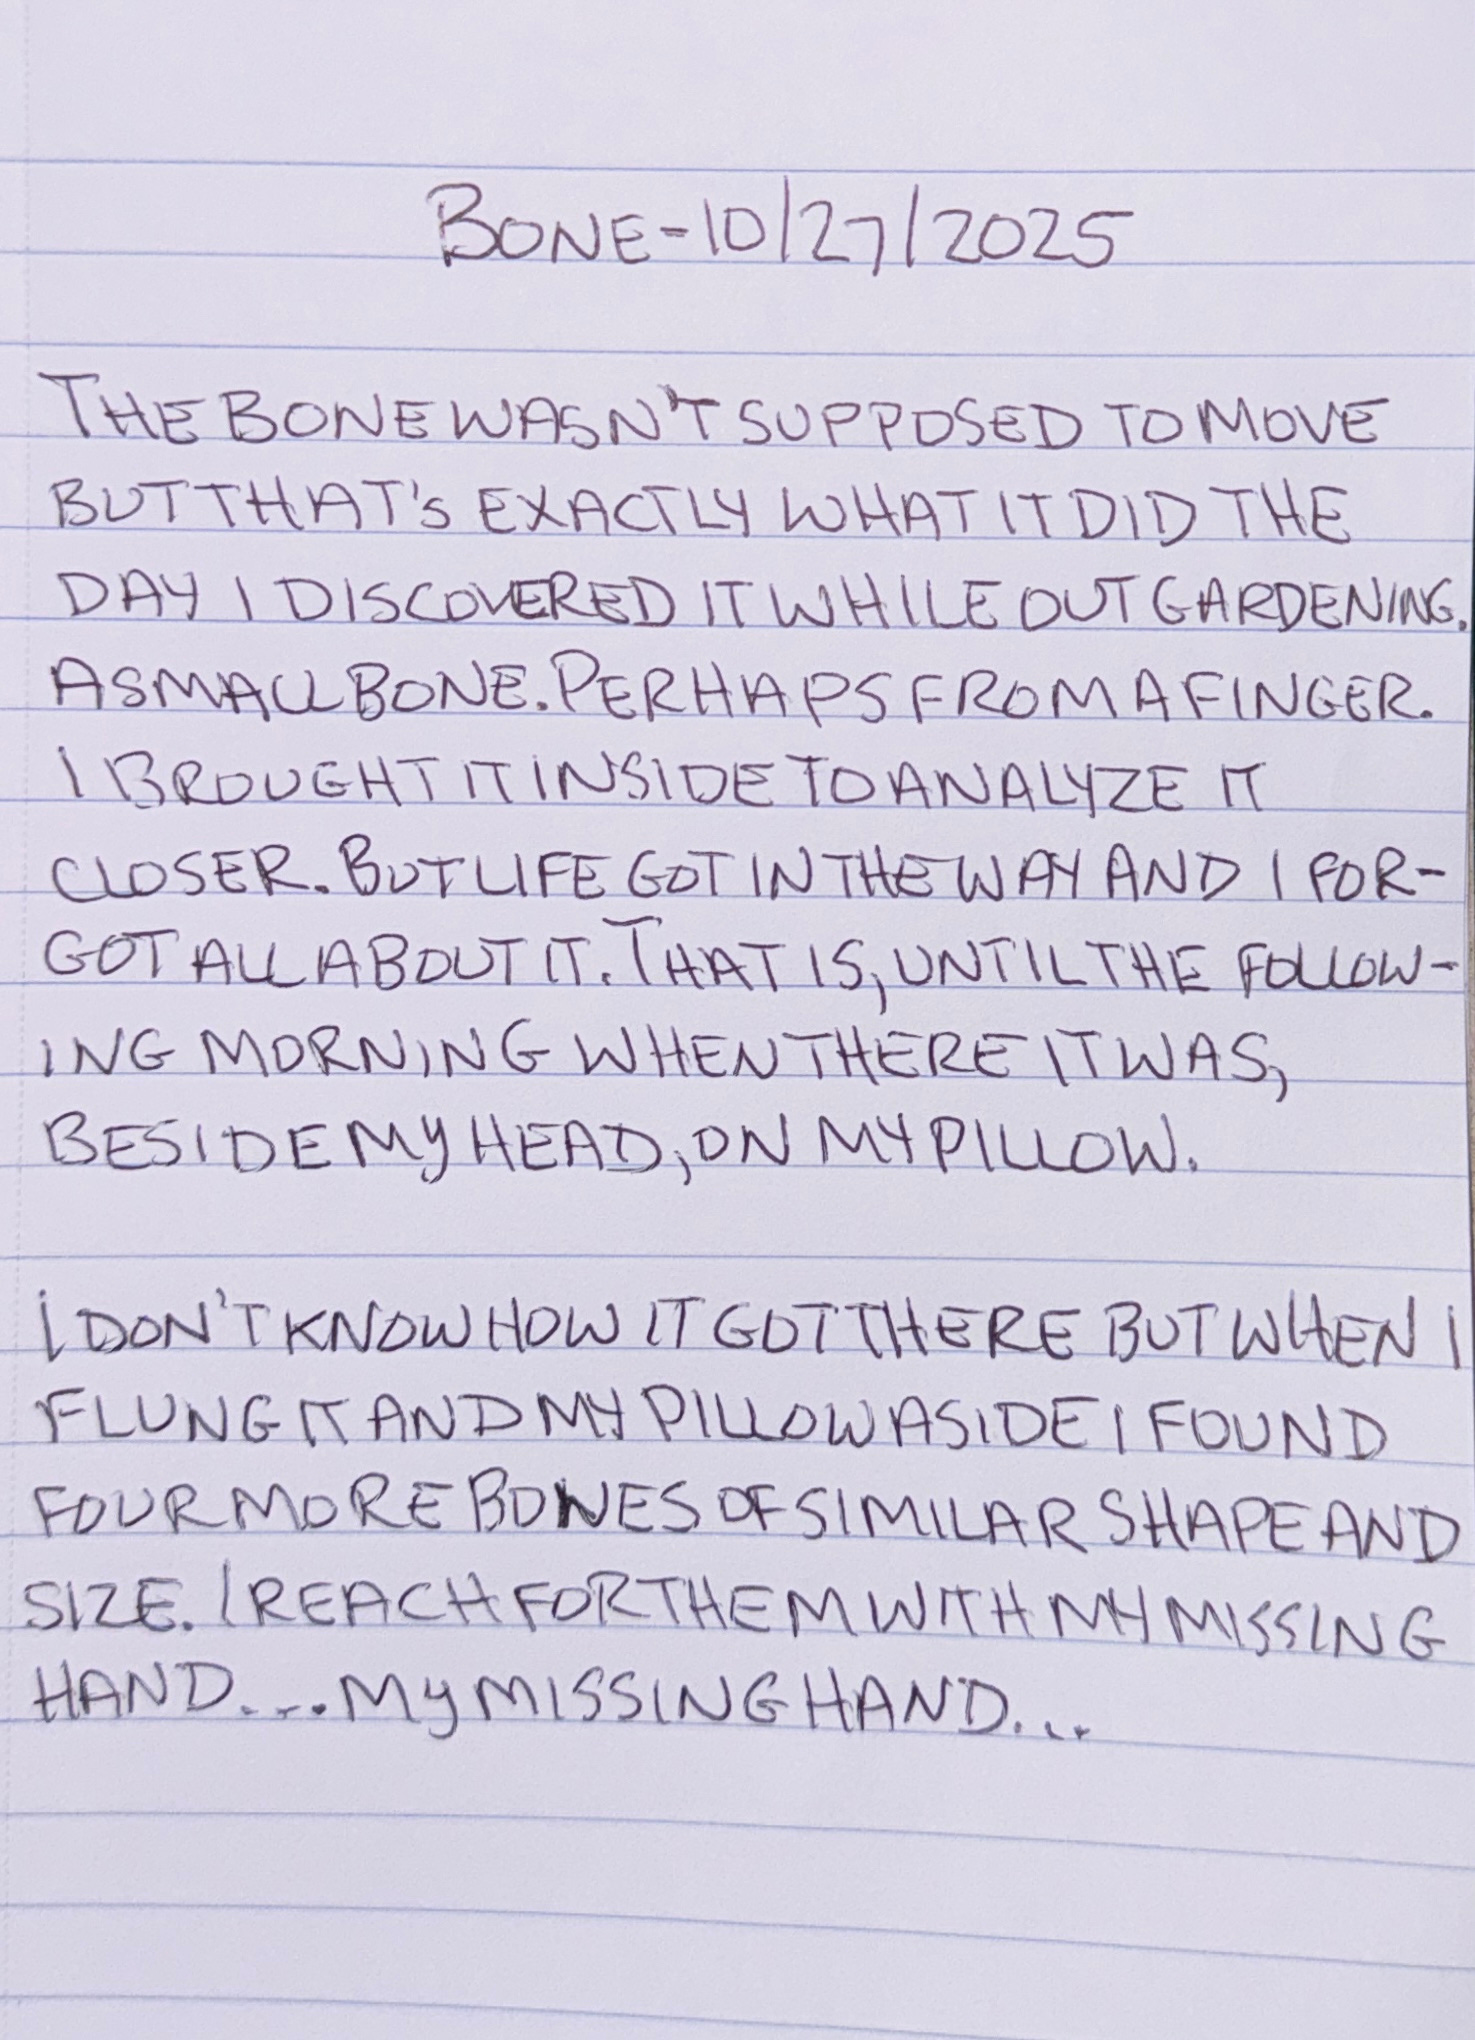 BONE-10/27/2025
THE BONE WASN'T SUPPOSED TO MOVE
BUT THAT'S EXACTLY WHAT IT DID THE
DAY I DISCOVERED IT WHILE OUT GARDENING.
A SMALL BONE. PERHAPS FROM A FINGER.
I BROUGHT IT INSIDE TO ANALYZE IT
CLOSER. BUT LIFE GOT IN THE WAY AND I FOR-
GOT ALL ABOUT IT. THAT IS, UNTIL THE FOLLOW-
ING MORNING WHEN THERE IT WAS,
BESIDE MY HEAD, ON MY PILLOW.
I DON'T KNOW HOW IT GOT THERE BUT WHEN I
FLUNG IT AND MY PILLOW ASIDE I FOUND
FOUR MORE BONES OF SIMILAR SHAPE AND
SIZE. I REACH FOR THEM WITH MY MISSING
HAND... MY MISSING HAND...